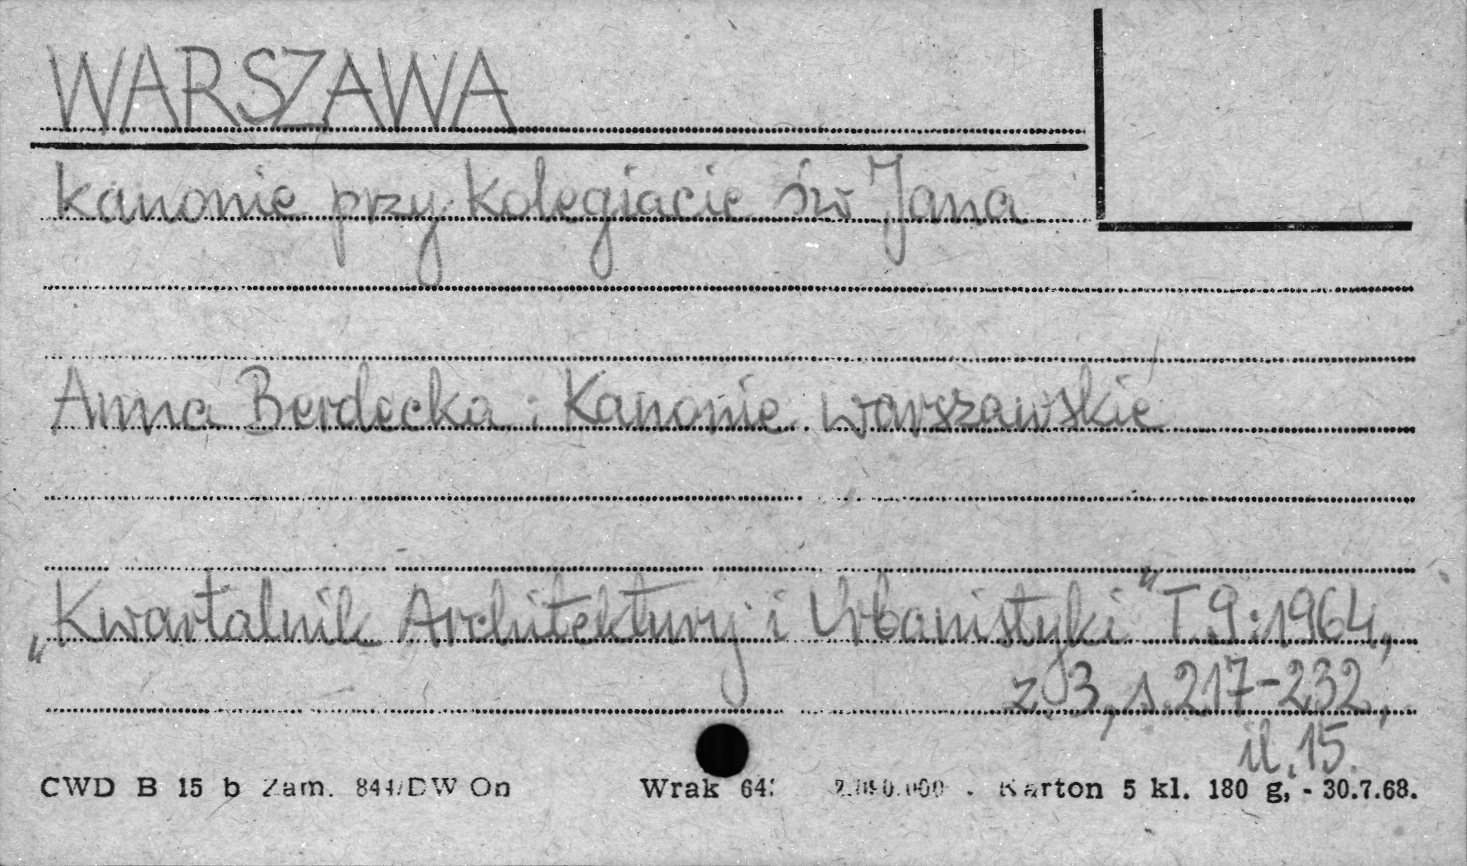 WARSZAWA
kanonie przy kolegiacie św Jana
Anna Berdecka : Kanonie warszawskie
„Kwartalnik Architektury i Urbanistyki" T.9:1964,
z. 3, s. 217-232,
il. 15.
CWD B 15 b Zam. 844/DW On Wrak - Karton 5 kl. 180 g, - 30.7.68.